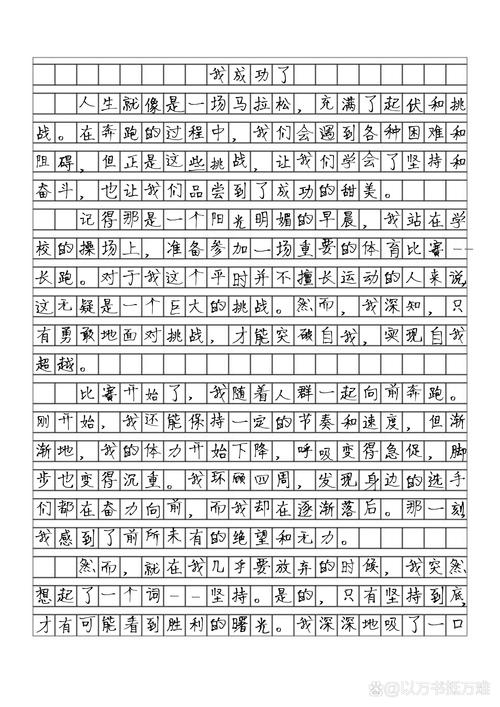 我成功了
人生就像是一场马拉松，充满了起伏和挑
战。在奔跑的过程中，我们会遇到各种困难和
阻碍，但正是这些挑战，让我们学会了坚持和
奋斗，也让我们品尝到了成功的甜美。
记得那是一个阳光明媚的早晨，我站在学
校的操场上，准备参加一场重要的体育比赛--
长跑。对于我这个平时并不擅长运动的人来说，
这无疑是一个巨大的挑战。然而，我深知，只
有勇敢地面对挑战，才能突破自我，实现自我
超越。
比赛开始了，我随着人群一起向前奔跑。
刚开始，我还能保持一定的节奏和速度，但渐
渐地，我的体力开始下降，呼吸变得急促，脚
步也变得沉重。我环顾四周，发现身边的选手
们都在奋力向前，而我却在逐渐落后。那一刻
我感到了前所未有的绝望和无力。
然而，就在我几乎要放弃的时候，我突然
想起了一个词--坚持。是的，只有坚持到底，
才有可能看到胜利的曙光。我深深地吸了一口
@以万书抵万难